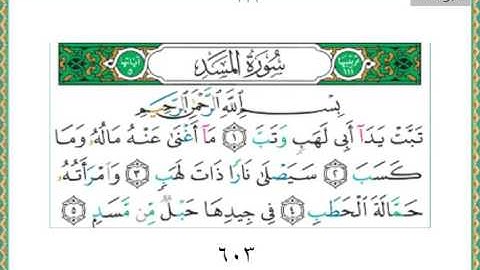 ١١١
ترتيبها ١١١ سُورَةُ المَسَدِ آياتها ٥
بِسْمِ اللَّهِ الرَّحْمَٰنِ الرَّحِيمِ
تَبَّتْ يَدَآ أَبِى لَهَبٍ وَتَبَّ ١ مَآ أَغْنَىٰ عَنْهُ مَالُهُۥ وَمَا
كَسَبَ ٢ سَيَصْلَىٰ نَارًا ذَاتَ لَهَبٍ ٣ وَٱمْرَأَتُهُۥ
حَمَّالَةَ ٱلْحَطَبِ ٤ فِى جِيدِهَا حَبْلٌ مِّن مَّسَدٍۭ ٥
٦٠٣